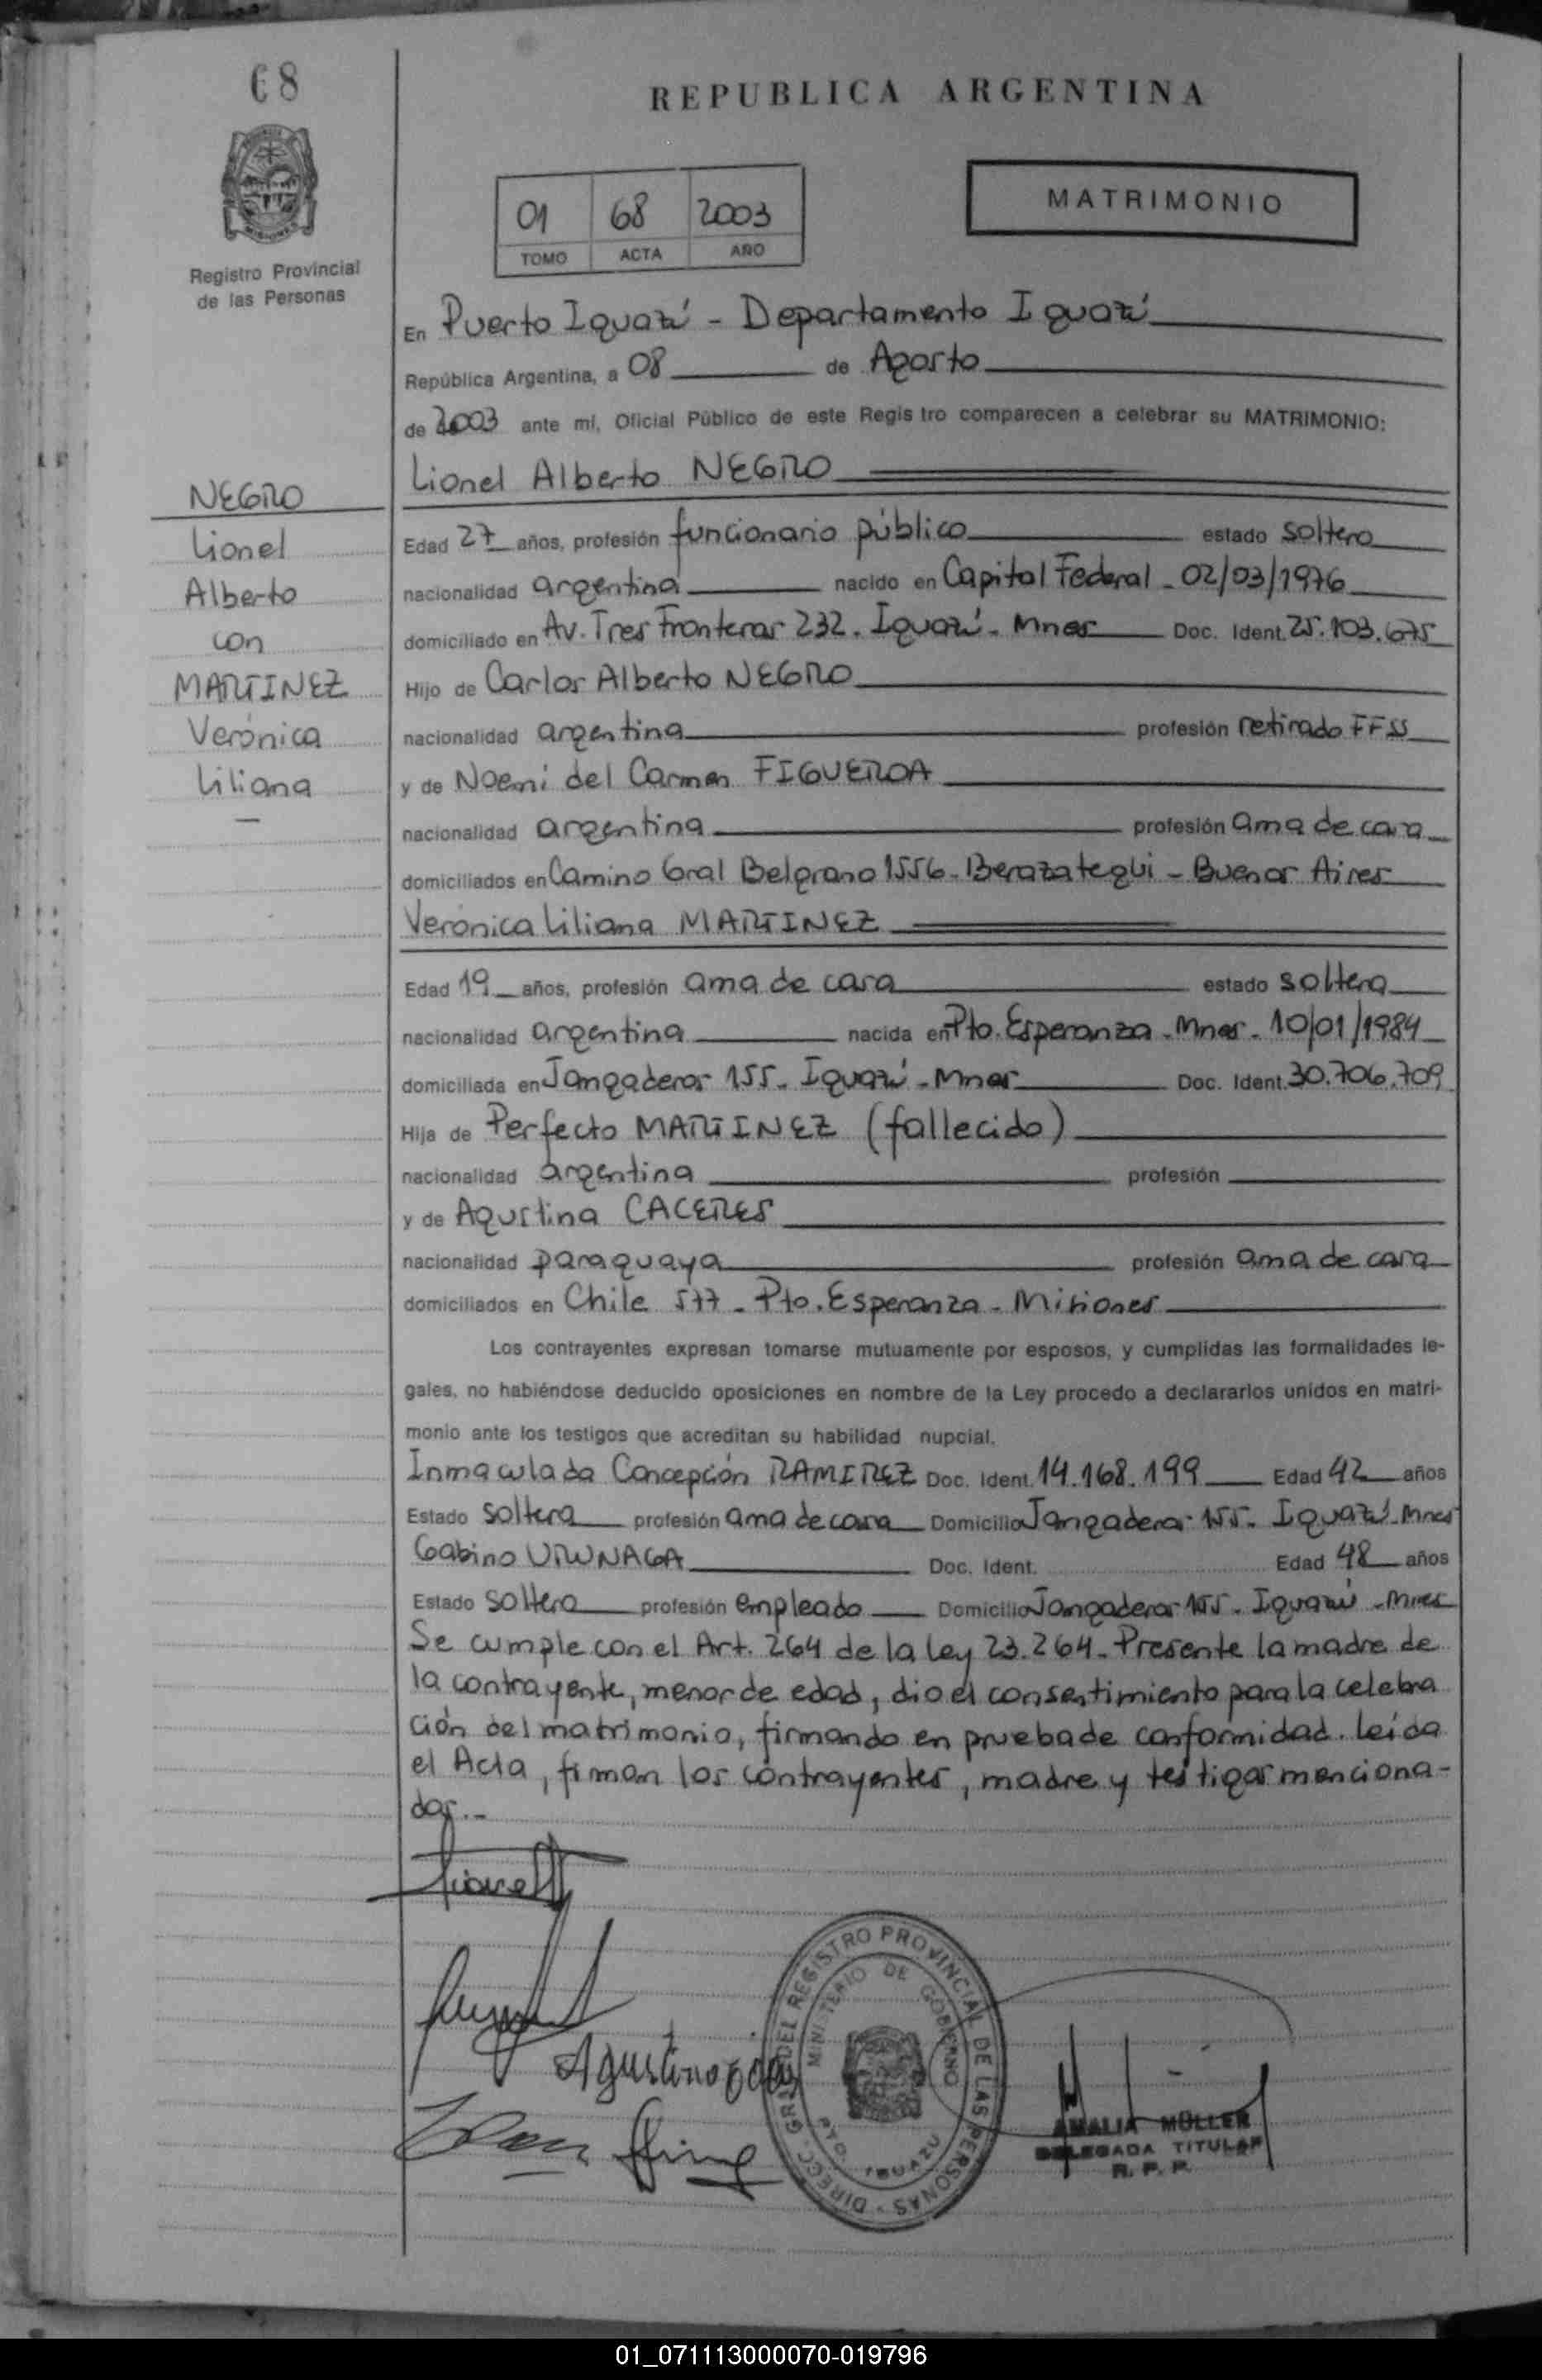 68
REPUBLICA ARGENTINA
MATRIMONIO
01 68 2003
TOMO ACTA AÑO
Registro Provincial
de las Personas
En Puerto Iguazú - Departamento Iguazú
República Argentina, a 08 de Agosto
de 2003 ante mí, Oficial Público de este Regis tro comparecen a celebrar su MATRIMONIO:
Lionel Alberto NEGRO
NEGRO
Lionel
Alberto
con
MARTINEZ
Verónica
Liliana
Edad 27 años, profesión funcionario público estado soltero
nacionalidad argentina nacido en Capital Federal - 02/03/1976
domiciliado en Av. Tres Fronteras 232. Iguazú - Mnes Doc. Ident. 25.103.675
Hijo de Carlos Alberto NEGRO
nacionalidad argentina profesión retirado FFSS
y de Noemí del Carmen FIGUEROA
nacionalidad argentina profesión ama de casa
domiciliados en Camino Gral Belgrano 1556 - Berazategui - Buenos Aires
Verónica Liliana MARTINEZ
Edad 19 años, profesión ama de casa estado soltera
nacionalidad argentina nacida en Pto. Esperanza - Mnes - 10/01/1984
domiciliada en Jangaderos 155 - Iguazú - Mnes Doc. Ident. 30.706.709
Hija de Perfecto MARTINEZ (fallecido)
nacionalidad argentina profesión
y de Agustina CACERES
nacionalidad paraguaya profesión ama de casa
domiciliados en Chile 577 - Pto. Esperanza - Misiones
Los contrayentes expresan tomarse mutuamente por esposos, y cumplidas las formalidades le-
gales, no habiéndose deducido oposiciones en nombre de la Ley procedo a declararlos unidos en matri-
monio ante los testigos que acreditan su habilidad nupcial.
Inmaculada Concepción RAMIREZ Doc. Ident. 14.168.199 Edad 42 años
Estado soltera profesión ama de casa Domicilio Jangaderos 155 - Iguazú - Mnes
Gabino Doc. Ident. Edad 48 años
Estado soltero profesión empleado Domicilio Jangaderos 155 - Iguazú - Mnes
Se cumple con el Art. 264 de la ley 23.264 - Presente la madre de
la contrayente, menor de edad, dio el consentimiento para la celebra
ción del matrimonio, firmando en prueba de conformidad. Leída
el Acta, firman los contrayentes, madre y testigos menciona-
dos.-
DIRECC. GRAL. DEL REGISTRO PROVINCIAL DE LAS PERSONAS
MINISTERIO DE GOBIERNO
PTO. IGUAZU
AMALIA MÜLLER
DELEGADA TITULAR
R. P. P.
01_071113000070-019796